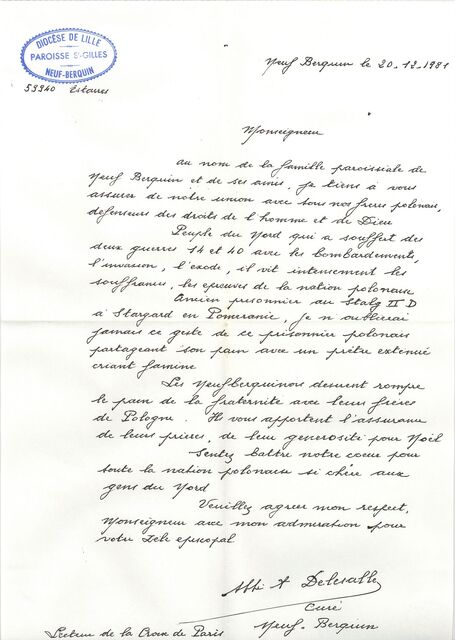 DIOCÈSE DE LILLE
PAROISSE St-GILLES
NEUF-BERQUIN
Neuf Berquin le 20.12.1981
59940 Estaires
Monseigneur
au nom de la famille paroissiale de
Neuf Berquin et de ses amis, je tiens à vous
assurer de notre union avec tous nos frères polonais,
défenseurs des droits de l'homme et de Dieu
Peuple du Nord qui a souffert des
deux guerres 14 et 40 avec les bombardements,
l'invasion, l'exode, il vit intensement les
souffrances, les épreuves de la nation polonaise
Ancien prisonnier au Stalg II D
à Stargard en Pomeranie, je n'oublierai
jamais ce geste de ce prisonnier polonais
partageant son pain avec un prêtre extenué
criant famine
Les Neufberquinois desirent rompre
le pain de la fraternité avec leurs frères
de Pologne. Ils vous apportent l'assurance
de leurs prières, de leur generosité pour Noël
Sentez battre notre coeur pour
toute la nation polonaise si chère aux
gens du Nord
Veuillez agreer mon respect,
Monseigneur avec mon admiration pour
votre zèle episcopal
Abbé A Delesalle
Curé
Neuf-Berquin
Lecteur de la Croix de Paris